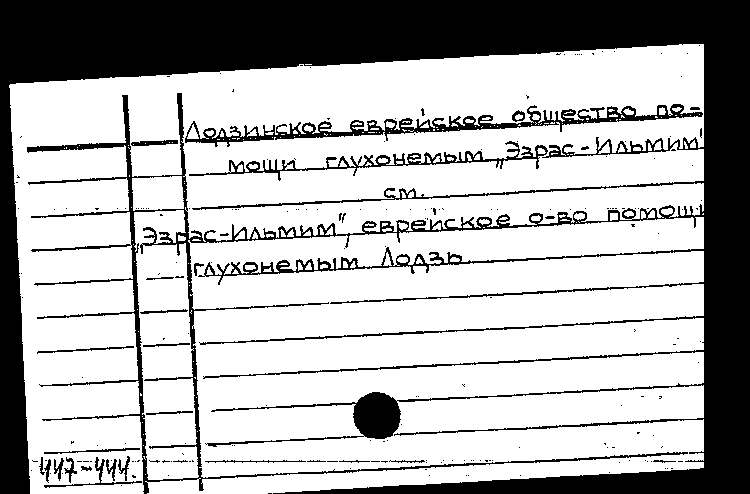 Лодзинское еврейское общество по-
мощи глухонемым „Эзрас-Ильмим"
см.
„Эзрас-Ильмим", еврейское о-во помощи
глухонемым Лодзь
447-444.